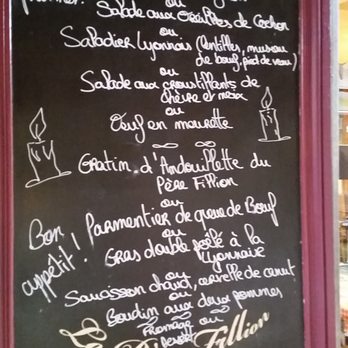 Salade aux Oreilles de Cochon
ou
Saladier Lyonnais (lentilles, museau
de boeuf, pied de veau)
ou
Salade aux croustillants de
chèvre et meaux
ou
Oeuf en meurette
Gratin d'Andouillette du
Père Fillion
ou
Parmentier de queue de Boeuf
ou
Gras double poêlé à la
Lyonnaise
ou
Saucisson chaud, cervelle de canut
ou
Boudin aux deux pommes
Fromage ou
dessert
Bon
appétit!
Fillion